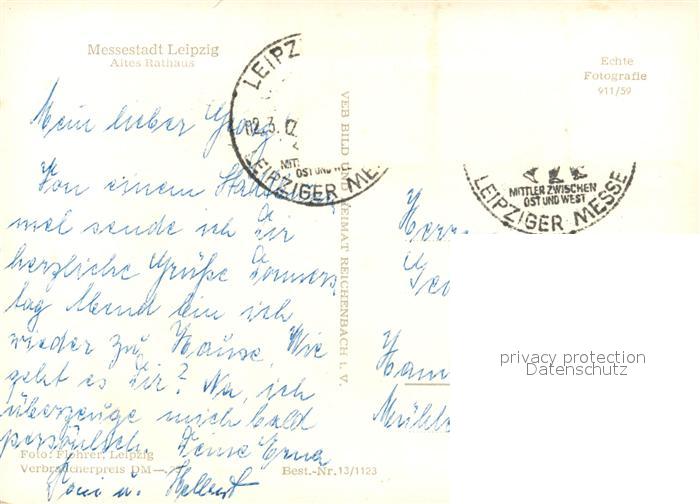 Messestadt Leipzig
Altes Rathaus
Echte
Fotografie
911/59
LEIPZ
12.3.
MITT
OST UND WE
LEIPZIGER ME
MITTLER ZWISCHEN
OST UND WEST
LEIPZIGER MESSE
VEB BILD UND HEIMAT REICHENBACH i. V.
Mein lieber
Von einem
mel sende ich Dir
herzliche Grüße Donners
tag Abend bin ich
wieder zu Hause. Wie
geht es Dir? Na, ich
überzeuge mich bald
persönlich. Deine Erna
u.
Herrn
Geo
Ham
privacy protection
Datenschutz
Foto: Flohrer, Leipzig
Verbraucherpreis DM
Best.-Nr. 13/1123